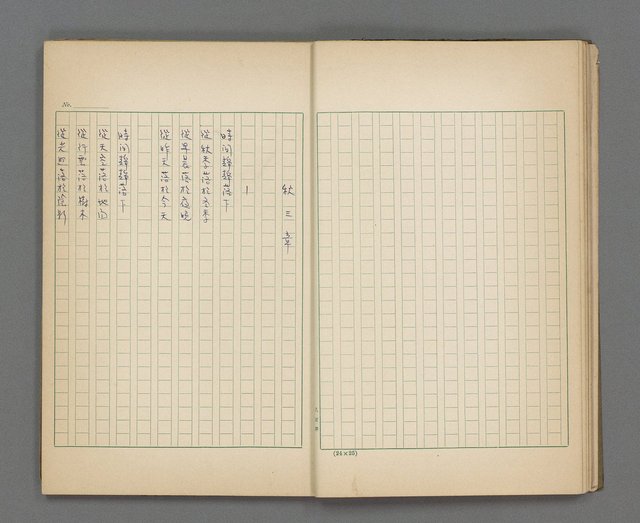 秋三章
1
時间靜靜落下
從秋季落於冬季
從早晨落於夜晚
從昨天落於今天
時间靜靜落下
從天空落於地面
從行雲落於樹木
從光照落於陰影
No.
(24×25)